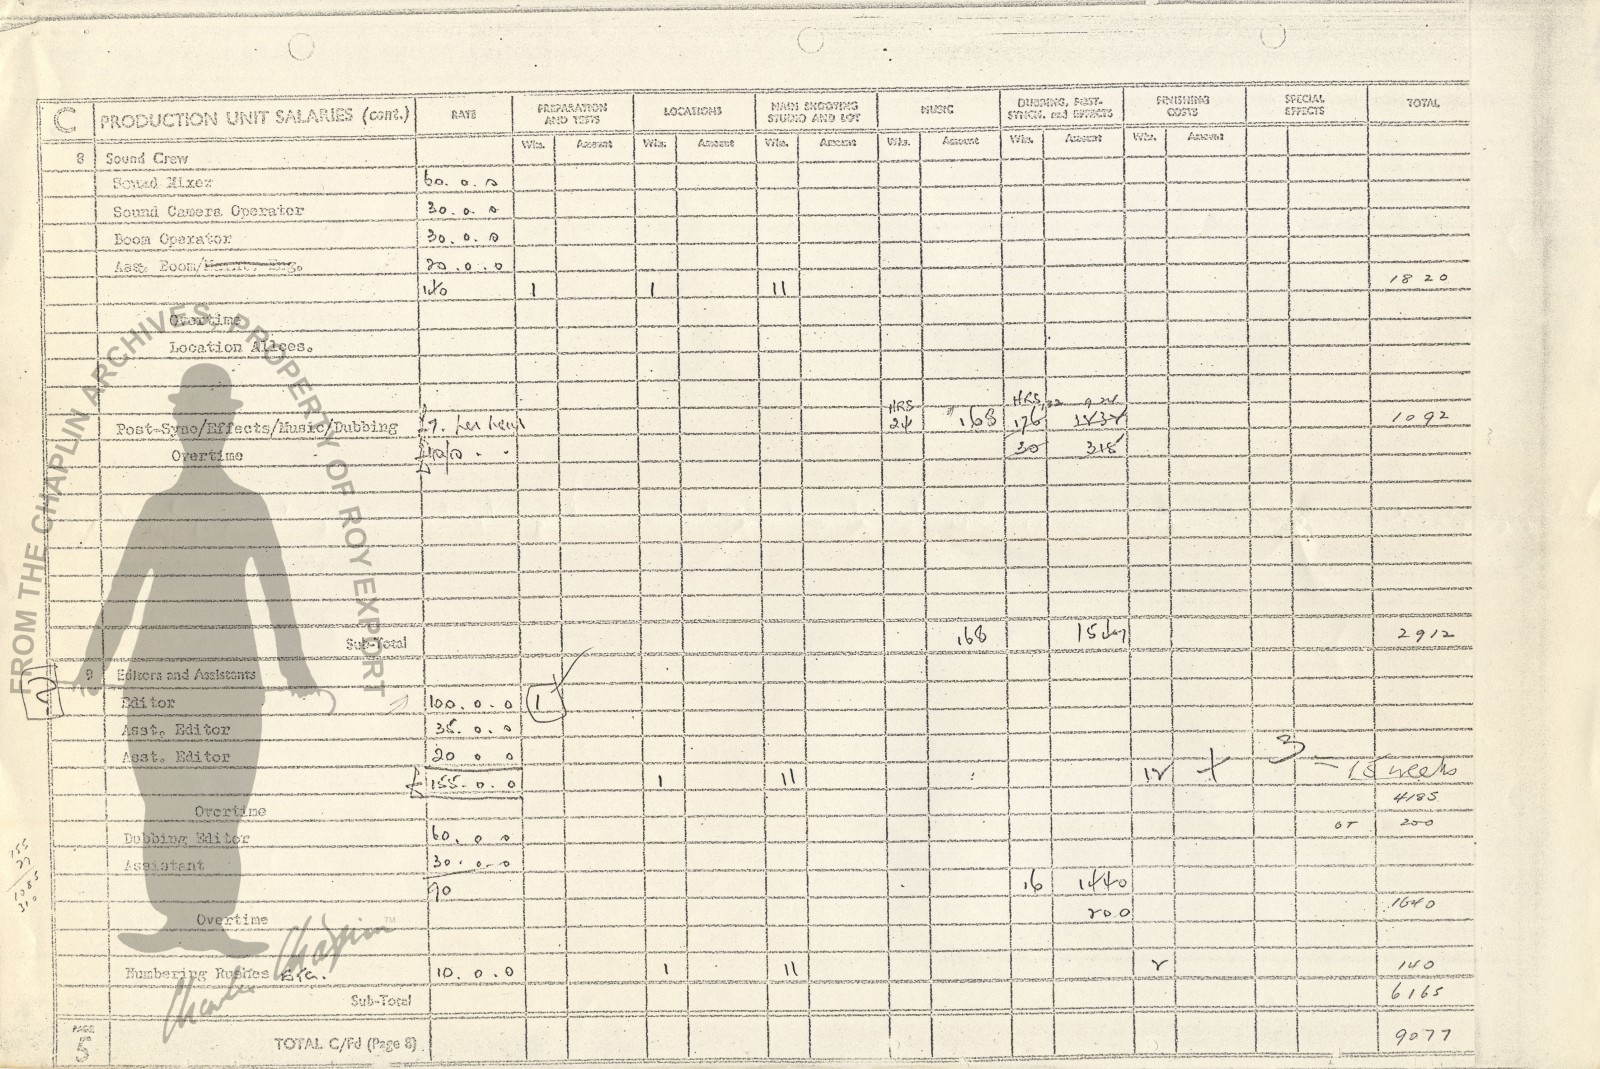 C PRODUCTION UNIT SALARIES (cont.) RATE PREPARATION AND TESTS LOCATIONS MAIN SHOOTING STUDIO AND LOT MUSIC DUBBING, POST-SYNCH. and EFFECTS FINISHING COSTS SPECIAL EFFECTS TOTAL
Wks. Amount Wks. Amount Wks. Amount Wks. Amount Wks. Amount Wks. Amount
8 Sound Crew
Sound Mixer 60. 0. 0
Sound Camera Operator 30. 0. 0
Boom Operator 30. 0. 0
Asst. Boom/Maint. Eng. 20. 0. 0
140 1 1 11 1820
Overtime
Location Allces.
HRS HRS 132 924
Post-Sync/Effects/Music/Dubbing £7. per hour 24 168 176 1232 1092
Overtime 30 315
Sub-Total 168 1547 2912
9 Editors and Assistants
Editor 100. 0. 0 1
Asst. Editor 35. 0. 0
Asst. Editor 20 0 0
£155. 0. 0 1 11 12 + 3 = 15 weeks
4185
Overtime OT 200
Dubbing Editor 60. 0 0
Assistant 30. 0. 0
90 16 1440
1640
Overtime 200
Numbering Rushes etc. 10. 0. 0 1 11 2 140
Sub-Total 6165
PAGE 5 TOTAL C/Fd (Page 8) 9077
?
155
27
1085
310
FROM THE CHAPLIN ARCHIVES, PROPERTY OF ROY EXPORT
Charlie Chaplin ™